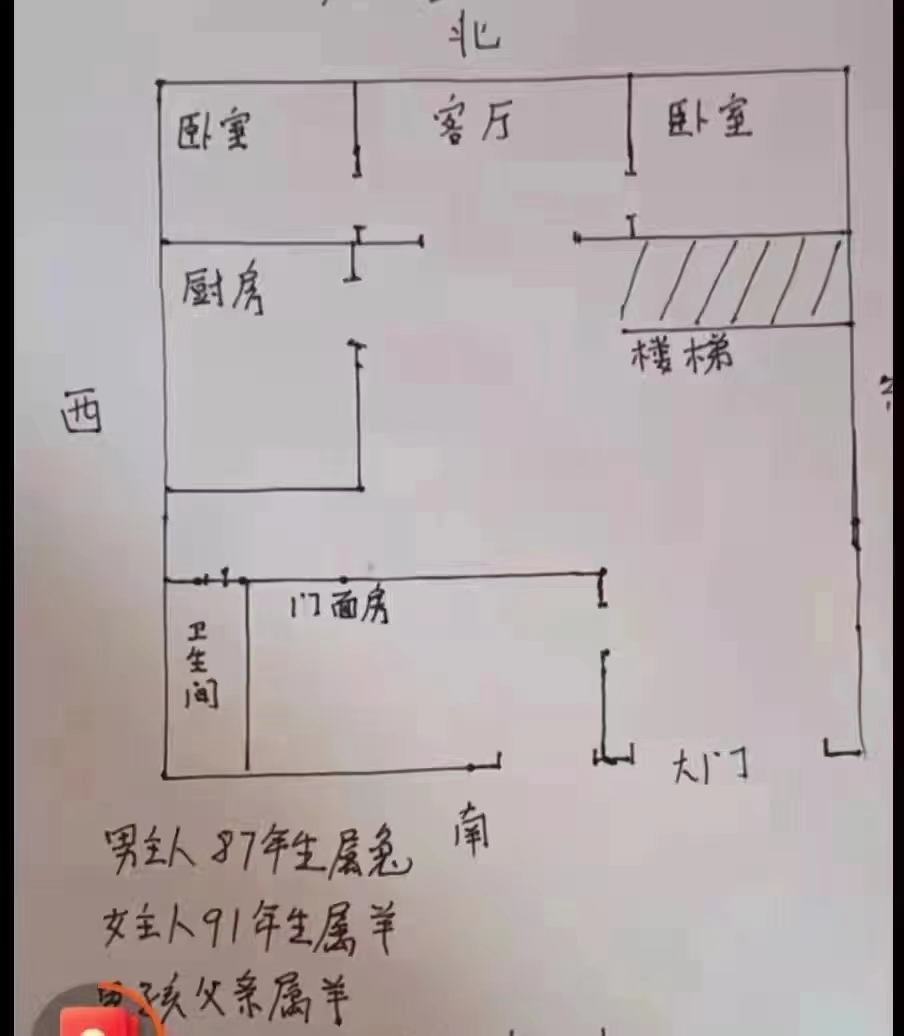 北
卧室
客厅
卧室
厨房
楼梯
西
门面房
卫生间
大门
南
男主人87年生属兔
女主人91年生属羊
男孩父亲属羊